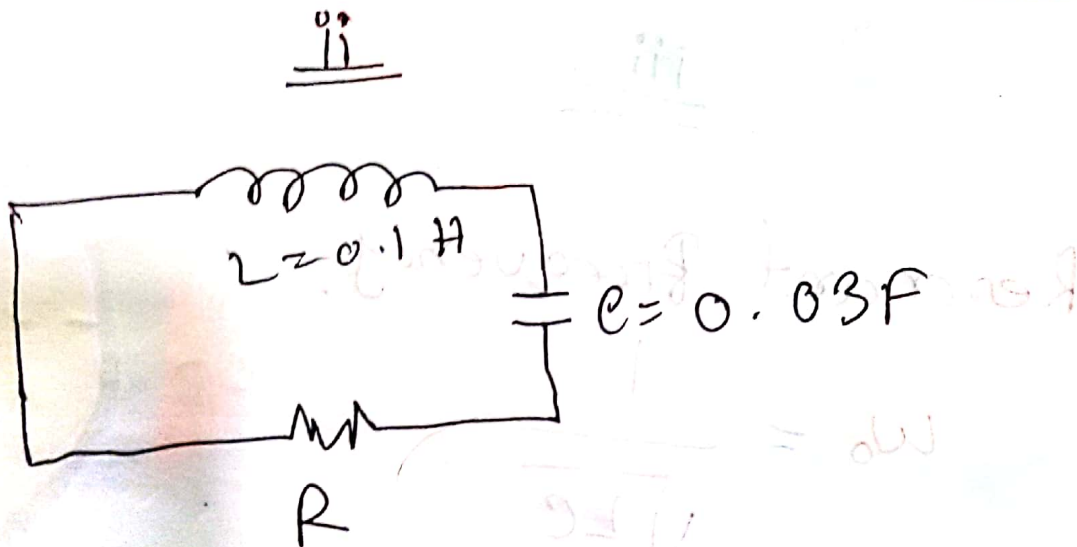 ii
L = 0.1 H
C = 0.03F
R